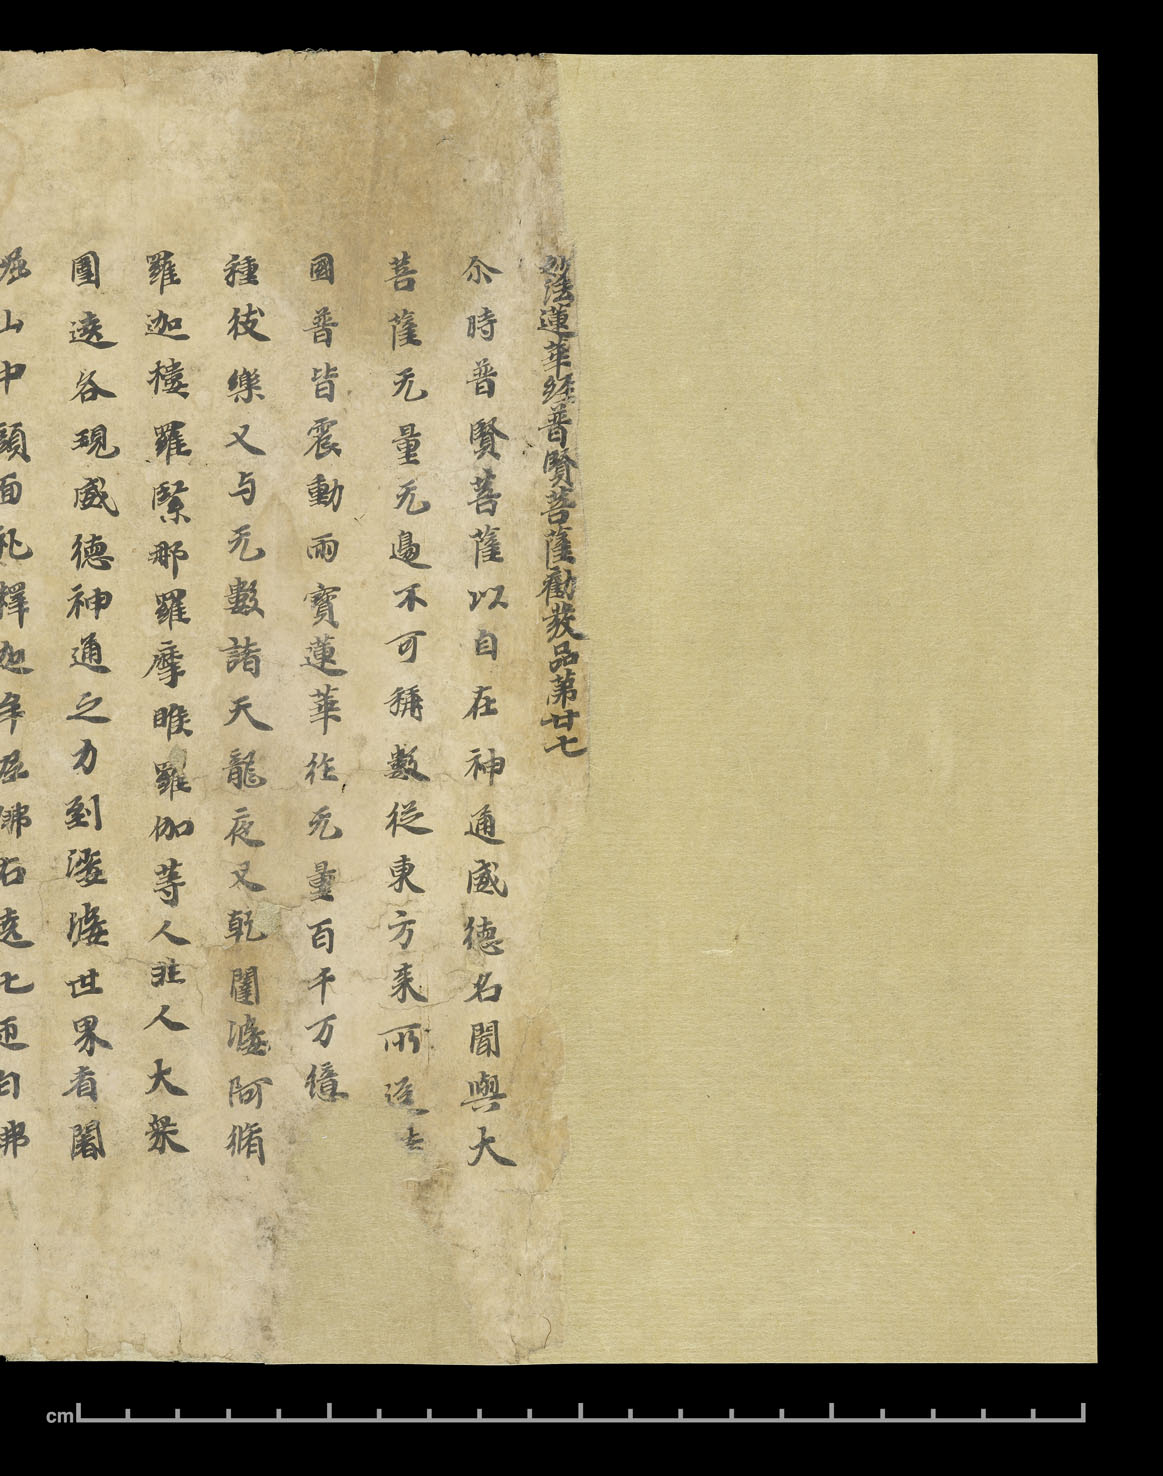 妙法蓮華經普賢菩薩勸發品第廿七
尒時普賢菩薩以自在神通威德名聞與大
菩薩无量无邊不可稱數從東方来所逕
國普皆震動雨寳蓮華作无量百千万億
種伎樂又与无數諸天龍夜叉乹闥婆阿脩
羅迦樓羅緊那羅摩睺羅伽等人非人大衆
圍遶各現威德神通之力到娑婆世界耆闍
崛山中頭面礼釋迦牟尼佛右遶七迊白佛
cm